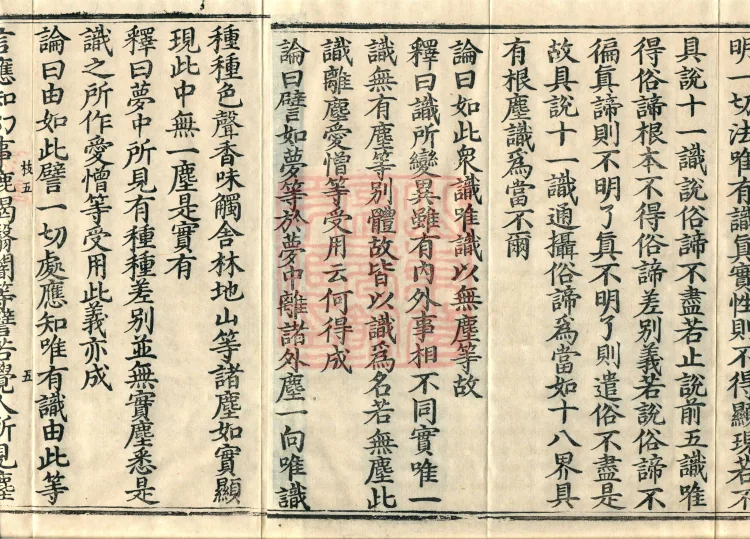 明一切法唯有識真實性則不得顯現若不
具說十一識說俗諦不盡若止說前五識唯
得俗諦根本不得俗諦差別義若說俗諦不
徧真諦則不明了真不明了則遣俗不盡是
故具說十一識通攝俗諦為當如十八界具
有根塵識為當不爾
論曰如此眾識唯識以無塵等故
釋曰識所變異雖有內外事相不同實唯一
識無有塵等別體故皆以識為名若無塵此
識離塵愛憎等受用云何得成
論曰譬如夢等於夢中離諸外塵一向唯識
種種色聲香味觸舍林地山等諸塵如實顯
現此中無一塵是實有
釋曰夢中所見有種種差別並無實塵悉是
識之所作愛憎等受用此義亦成
論曰由如此譬一切處應知唯有識由此等
枝五
五
言應知幻事鹿渴翳闇等譬若覺人所見塵